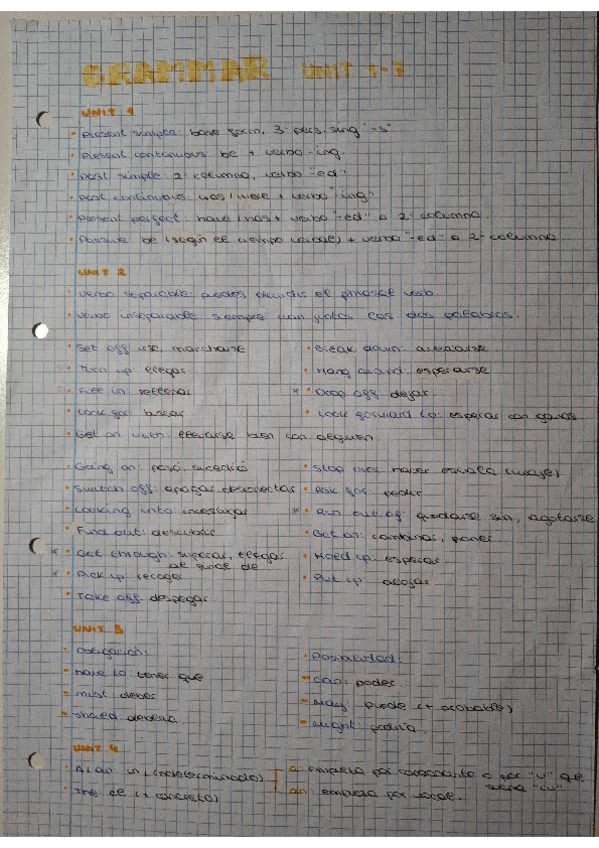 GRAMMAR UNIT 1-7
UNIT 1
• Present simple: base form, 3ª pers. sing "-s"
• Present continuous: be + verbo -ing.
• Past simple: 2ª columna, verbo "ed"
• Past continuous: was/were + verbo "ing"
• Present perfect: have/has + verbo "-ed" o 2ª columna.
• Passive: be (según el tiempo verbal) + verbo "-ed" o 2ª columna
UNIT 2
• Verbo separable: puedes dividir el phrasal verb.
• Verbo inseparable siempre van juntas las dos palabras.
• Set off: irse, marcharse
• Break down: averiarse
• Turn up: llegar
• Hang around: esperarse
• Fill in: rellenar
× • Drop off: dejar
• Look for: buscar
• Look forward to: esperar con ganas
• Get on with: llevarse bien con alguien.
• Going on: pasó, sucedió
• Stop over: hacer escala (viaje)
• Switch off: apagar, desconectar
• Ask for: pedir
• Looking into: investigar
× • Run out of: quedarse sin, agotarse
• Find out: descubrir
• Get on:
× • Get through: superar, llegar al final de
• Hold up: esperar
× • Pick up: recoger
• Put up: alojar
• Take off: despegar
UNIT 3
• Obligación:
• Posibilidad:
- Have to: tener que
- Can: poder
- Must: deber
- May: puede (+ probable)
- Should: debería
- Might: podría
UNIT 4
• A/an: un (indeterminado)
a: empieza por consonante o por "u" que suena "iu"
an: empieza por vocal.
• The: el (+ concreto)